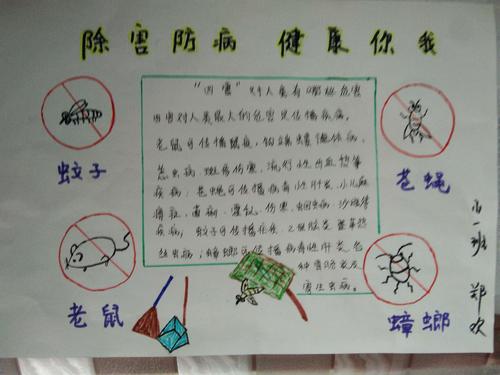 除害防病 健康你我
"四害"对人类有哪些危害
四害对人类最大的危害是传播疾病。
老鼠可传播鼠疫，钩端螺旋体病、
恙虫病、斑疹伤寒、流行性出血热等
疾病；苍蝇可传播病毒性肝炎、小儿麻
痹症、菌痢、霍乱、伤寒、蛔虫病、沙眼等
疾病；蚊子可传播疟疾、乙型脑炎、登革热
丝虫病；蟑螂可传播病毒性肝炎
寄生虫病。
蚊子
苍蝇
老鼠
蟑螂
小一班 郑欢